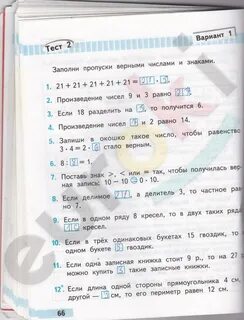 Тест 2
Вариант 1
Заполни пропуски верными числами и знаками.
1. 21 + 21 + 21 + 21 + 21 = 21 · 5.
2. Произведение чисел 9 и 3 равно 27.
3. Если 18 разделить на 3, то получится 6.
4. Произведение чисел и 2 равно 14.
5. Запиши в окошко такое число, чтобы равенство
3 · 4 = 2 · 6 стало верным.
6. 8 : = 1.
7. Поставь знак >, < или =, так, чтобы получилась вер-
ная запись: 10 – 10 0 · 10.
8. Если делимое 21, а делитель 3, то частное рав-
но 7.
9. Если в одном ряду 8 кресел, то в двух таких рядах
кресел.
10. Если в трёх одинаковых букетах 15 гвоздик, то в
одном букете гвоздик.
11. Если одна записная книжка стоит 9 р., то на 27 р.
можно купить 3 такие записные книжки.
12. Если длина одной стороны прямоугольника 4 см, а
другой — см, то его периметр равен 12 см.
66